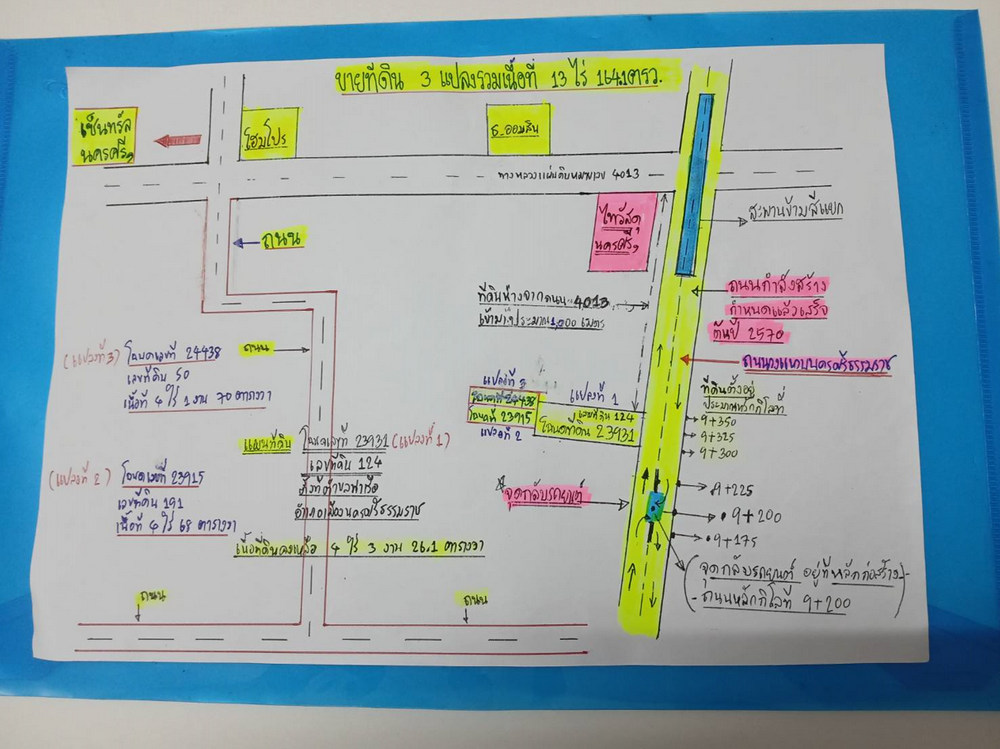 ขายที่ดิน 3 แปลงรวมเนื้อที่ 13 ไร่ 164.1 ตรว.
เซ็นทรัล
นครศรีฯ
โฮมโปร
ธ.ออมสิน
ทางหลวงแผ่นดินหมายเลข 4013
ไทวัสดุ
นครศรีฯ
สะพานข้ามสี่แยก
ถนน
ที่ดินห่างจากถนน 4013
เข้ามาประมาณ 1,000 เมตร
ถนนกำลังสร้าง
กำหนดแล้วเสร็จ
ต้นปี 2570
ถนนวงแหวนนครศรีธรรมราช
(แปลงที่ 3) โฉนดเลขที่ 24438
เลขที่ดิน 50
เนื้อที่ 4 ไร่ 1 งาน 70 ตารางวา
ถนน
แปลงที่ 3
โฉนดที่ 24438
โฉนดที่ 23915
แปลงที่ 2
แปลงที่ 1
เลขที่ดิน 124
โฉนดที่ดิน 23931
ที่ดินตั้งอยู่
ประมาณหลักกิโลที่
9+350
9+325
9+300
โฉนดเลขที่ 23931 (แปลงที่ 1)
เลขที่ดิน 124
ตั้งที่ตำบลท่าเรือ
อำเภอเมืองนครศรีธรรมราช
เนื้อที่ดินคงเหลือ 4 ไร่ 3 งาน 26.1 ตารางวา
(แปลงที่ 2) โฉนดเลขที่ 23915
เลขที่ดิน 191
เนื้อที่ 4 ไร่ 68 ตารางวา
จุดกลับรถยนต์
9+225
9+200
9+175
(จุดกลับรถยนต์ อยู่ที่หลักก่อสร้าง-
-ถนนหลักกิโลที่ 9+200)
ถนน
ถนน